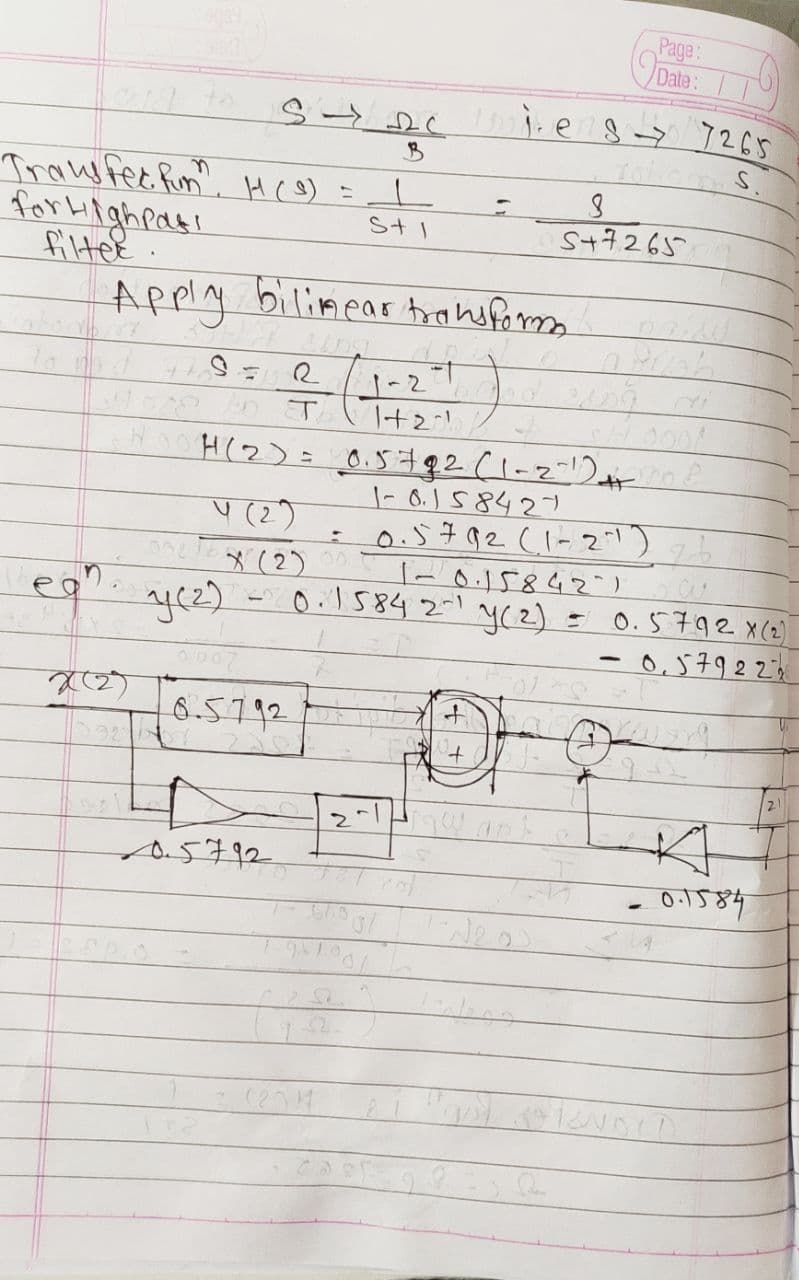 Page:
Date: / /
S → Ωc/B i.e S → 7265/S.
Transfer funⁿ. H(S) = 1/(S+1) = S/(S+7265)
for Highpass
filter.
Apply bilinear transform
S = 2/T ((1-z⁻¹)/(1+z⁻¹))
H(z) = 0.5792(1-z⁻¹)/(1-0.1584z⁻¹)
Y(z)/X(z) = 0.5792(1-z⁻¹)/(1-0.1584z⁻¹)
eqⁿ y(z) - 0.1584 z⁻¹ y(z) = 0.5792 x(z)
- 0.5792z⁻¹
x(z)
0.5792
+
+
+
z⁻¹
z⁻¹
-0.5792
- 0.1584